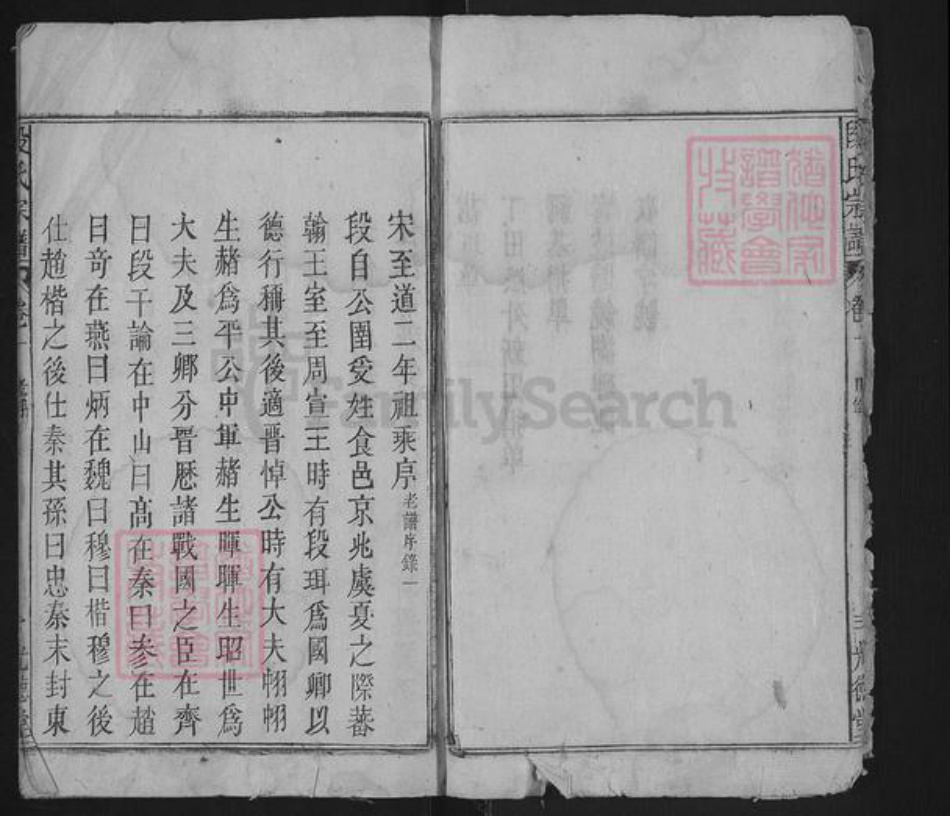 段氏宗譜
卷一
目錄
光德堂
猶他家譜學會收藏
宋至道二年祖乘序 老譜序錄一
段自公圉受姓食邑京兆虞夏之際蕃
翰王室至周宣王時有段珥爲國卿以
德行稱其後適晉悼公時有大夫栩栩
生赭爲平公中軍赭生暉暉生昭世爲
大夫及三卿分晋歷諸戰國之臣在齊
曰段干論在中山曰高在秦曰参在趙
曰竒在燕曰炳在魏曰穆曰楷穆之後
仕趙楷之後仕秦其孫曰忠秦末封東
段氏宗譜
卷一
FamilySearch